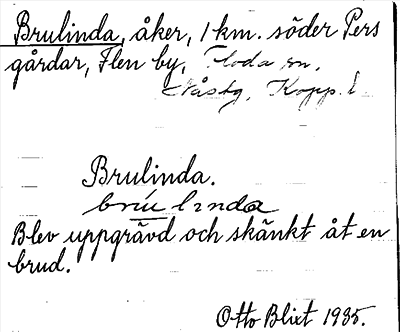 Brulinda, åker, 1 km. söder Pers
gårdar, Flen by, Floda sn,
Nåstg, Kopp. l.
Brulinda.
brú linda
Blev uppgrävd och skänkt åt en
brud.
Otto Blixt 1935.